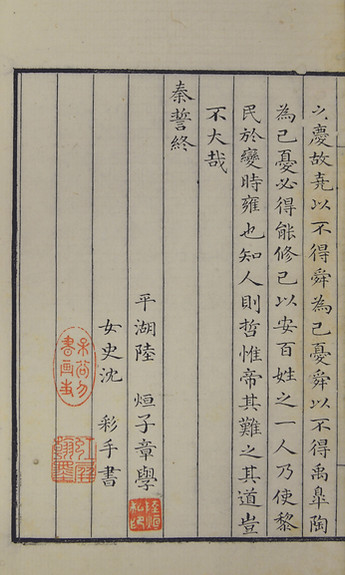 之慶故堯以不得舜為己憂舜以不得禹臯陶
為己憂必得能修己以安百姓之一人乃使黎
民於變時雍也知人則哲惟帝其難之其道豈
不大哉
秦誓終
平湖陸烜子章學
女史沈彩手書